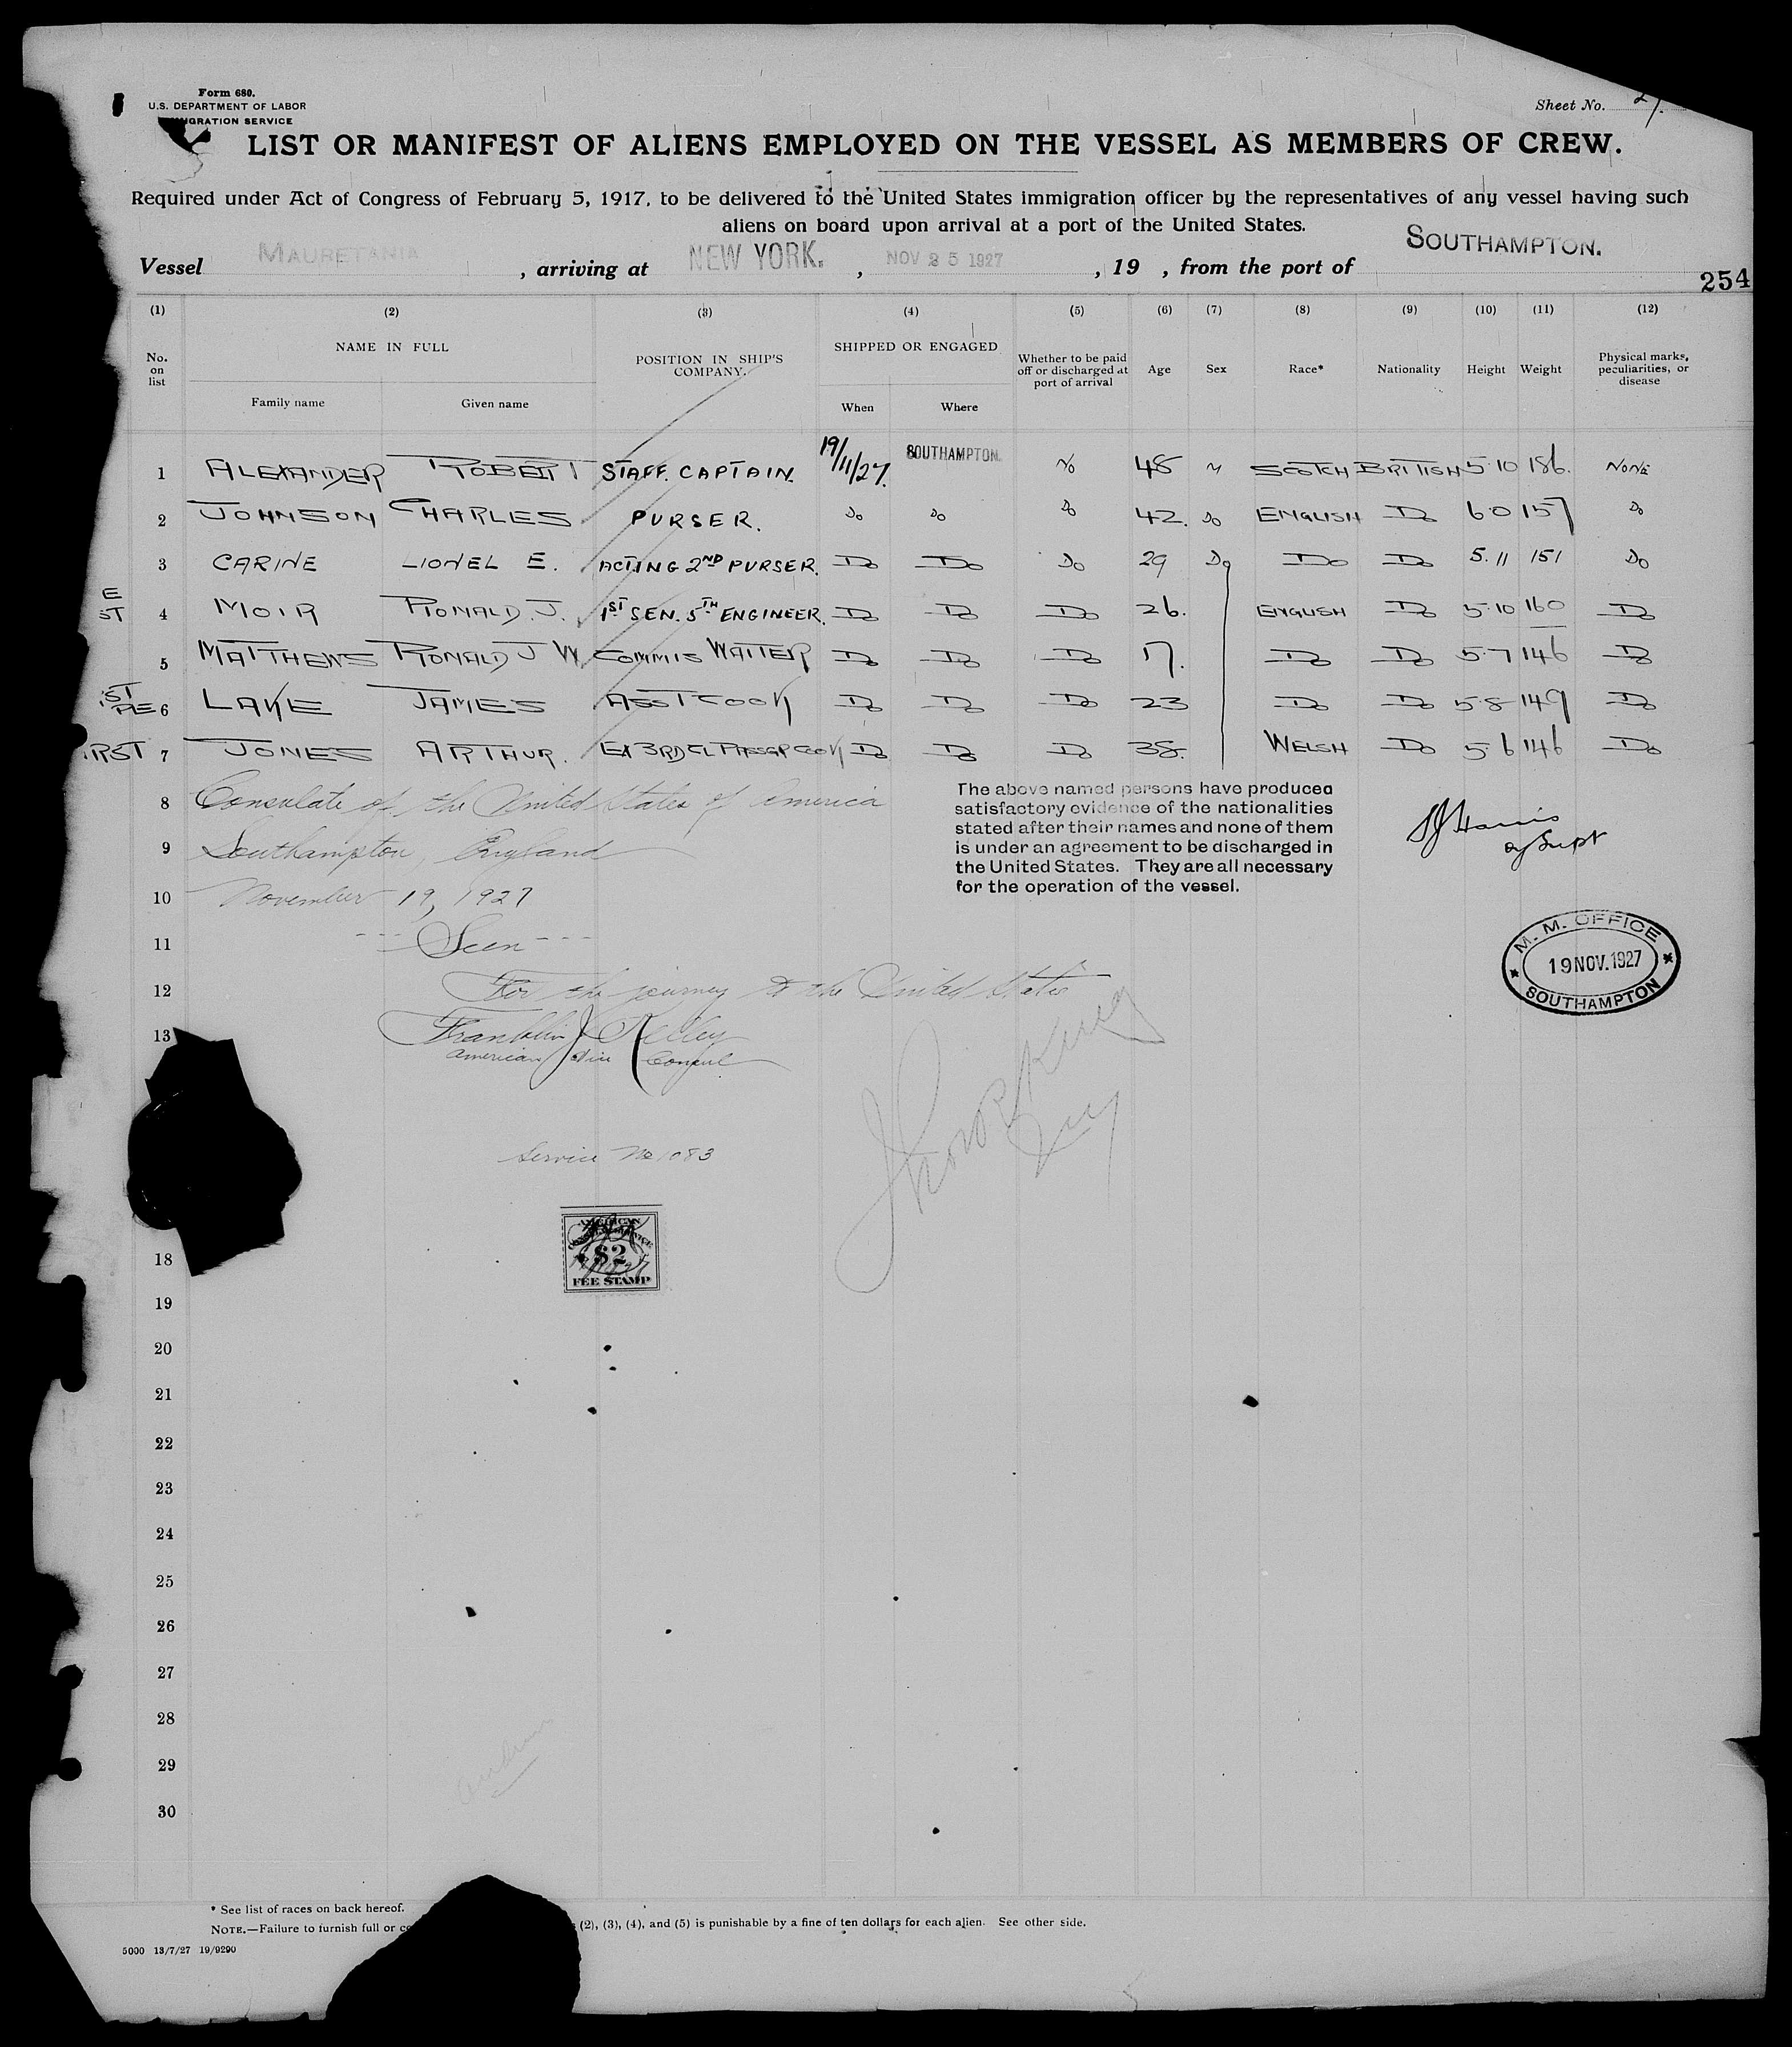 Form 680.
U.S. DEPARTMENT OF LABOR
IGRATION SERVICE
Sheet No.
LIST OR MANIFEST OF ALIENS EMPLOYED ON THE VESSEL AS MEMBERS OF CREW.
Required under Act of Congress of February 5, 1917, to be delivered to the United States immigration officer by the representatives of any vessel having such
aliens on board upon arrival at a port of the United States.
Vessel MAURETANIA , arriving at NEW YORK. , NOV 25 1927 , 19 , from the port of SOUTHAMPTON.
254
(1) (2) (3) (4) (5) (6) (7) (8) (9) (10) (11) (12)
No. on list NAME IN FULL Family name Given name POSITION IN SHIP'S COMPANY. SHIPPED OR ENGAGED When Where Whether to be paid off or discharged at port of arrival Age Sex Race* Nationality Height Weight Physical marks, peculiarities, or disease
1 ALEXANDER ROBERT STAFF. CAPTAIN. 19/11/27. SOUTHAMPTON. No 48 M SCOTCH BRITISH 5·10 186. NONE
2 JOHNSON CHARLES PURSER. Do Do Do 42. Do ENGLISH Do 6·0 157 Do
3 CARINE LIONEL E. ACTING 2ND PURSER. Do Do Do 29 Do Do Do 5.11 151 Do
E
ST 4 MOIR RONALD. J. 1ST SEN. 5TH ENGINEER. Do Do Do 26. ENGLISH Do 5·10 160 Do
5 MATTHEWS RONALD J W COMMIS WAITER Do Do Do 17. Do Do 5·7 146 Do
6 LAKE JAMES ASST COOK Do Do Do 23 Do Do 5·8 149 Do
RST 7 JONES ARTHUR. EX 3RD CL PASSGR COOK Do Do Do 38. WELSH Do 5·6 146 Do
8 Consulate of the United States of America
9 Southampton, England
10 November 19, 1927
11 --- Seen ---
12 For the journey to the United States
13 Franklin Kelley
American Vice Consul
The above named persons have produced
satisfactory evidence of the nationalities
stated after their names and none of them
is under an agreement to be discharged in
the United States. They are all necessary
for the operation of the vessel.
Harris
Supt
M. M. OFFICE
19 NOV. 1927
SOUTHAMPTON
Service No 1083
AMERICAN
SERVICE
$2
FEE STAMP
18
19
20
21
22
23
24
25
26
27
28
29
30
* See list of races on back hereof.
NOTE.—Failure to furnish full or (2), (3), (4), and (5) is punishable by a fine of ten dollars for each alien. See other side.
5000 13/7/27 19/9290